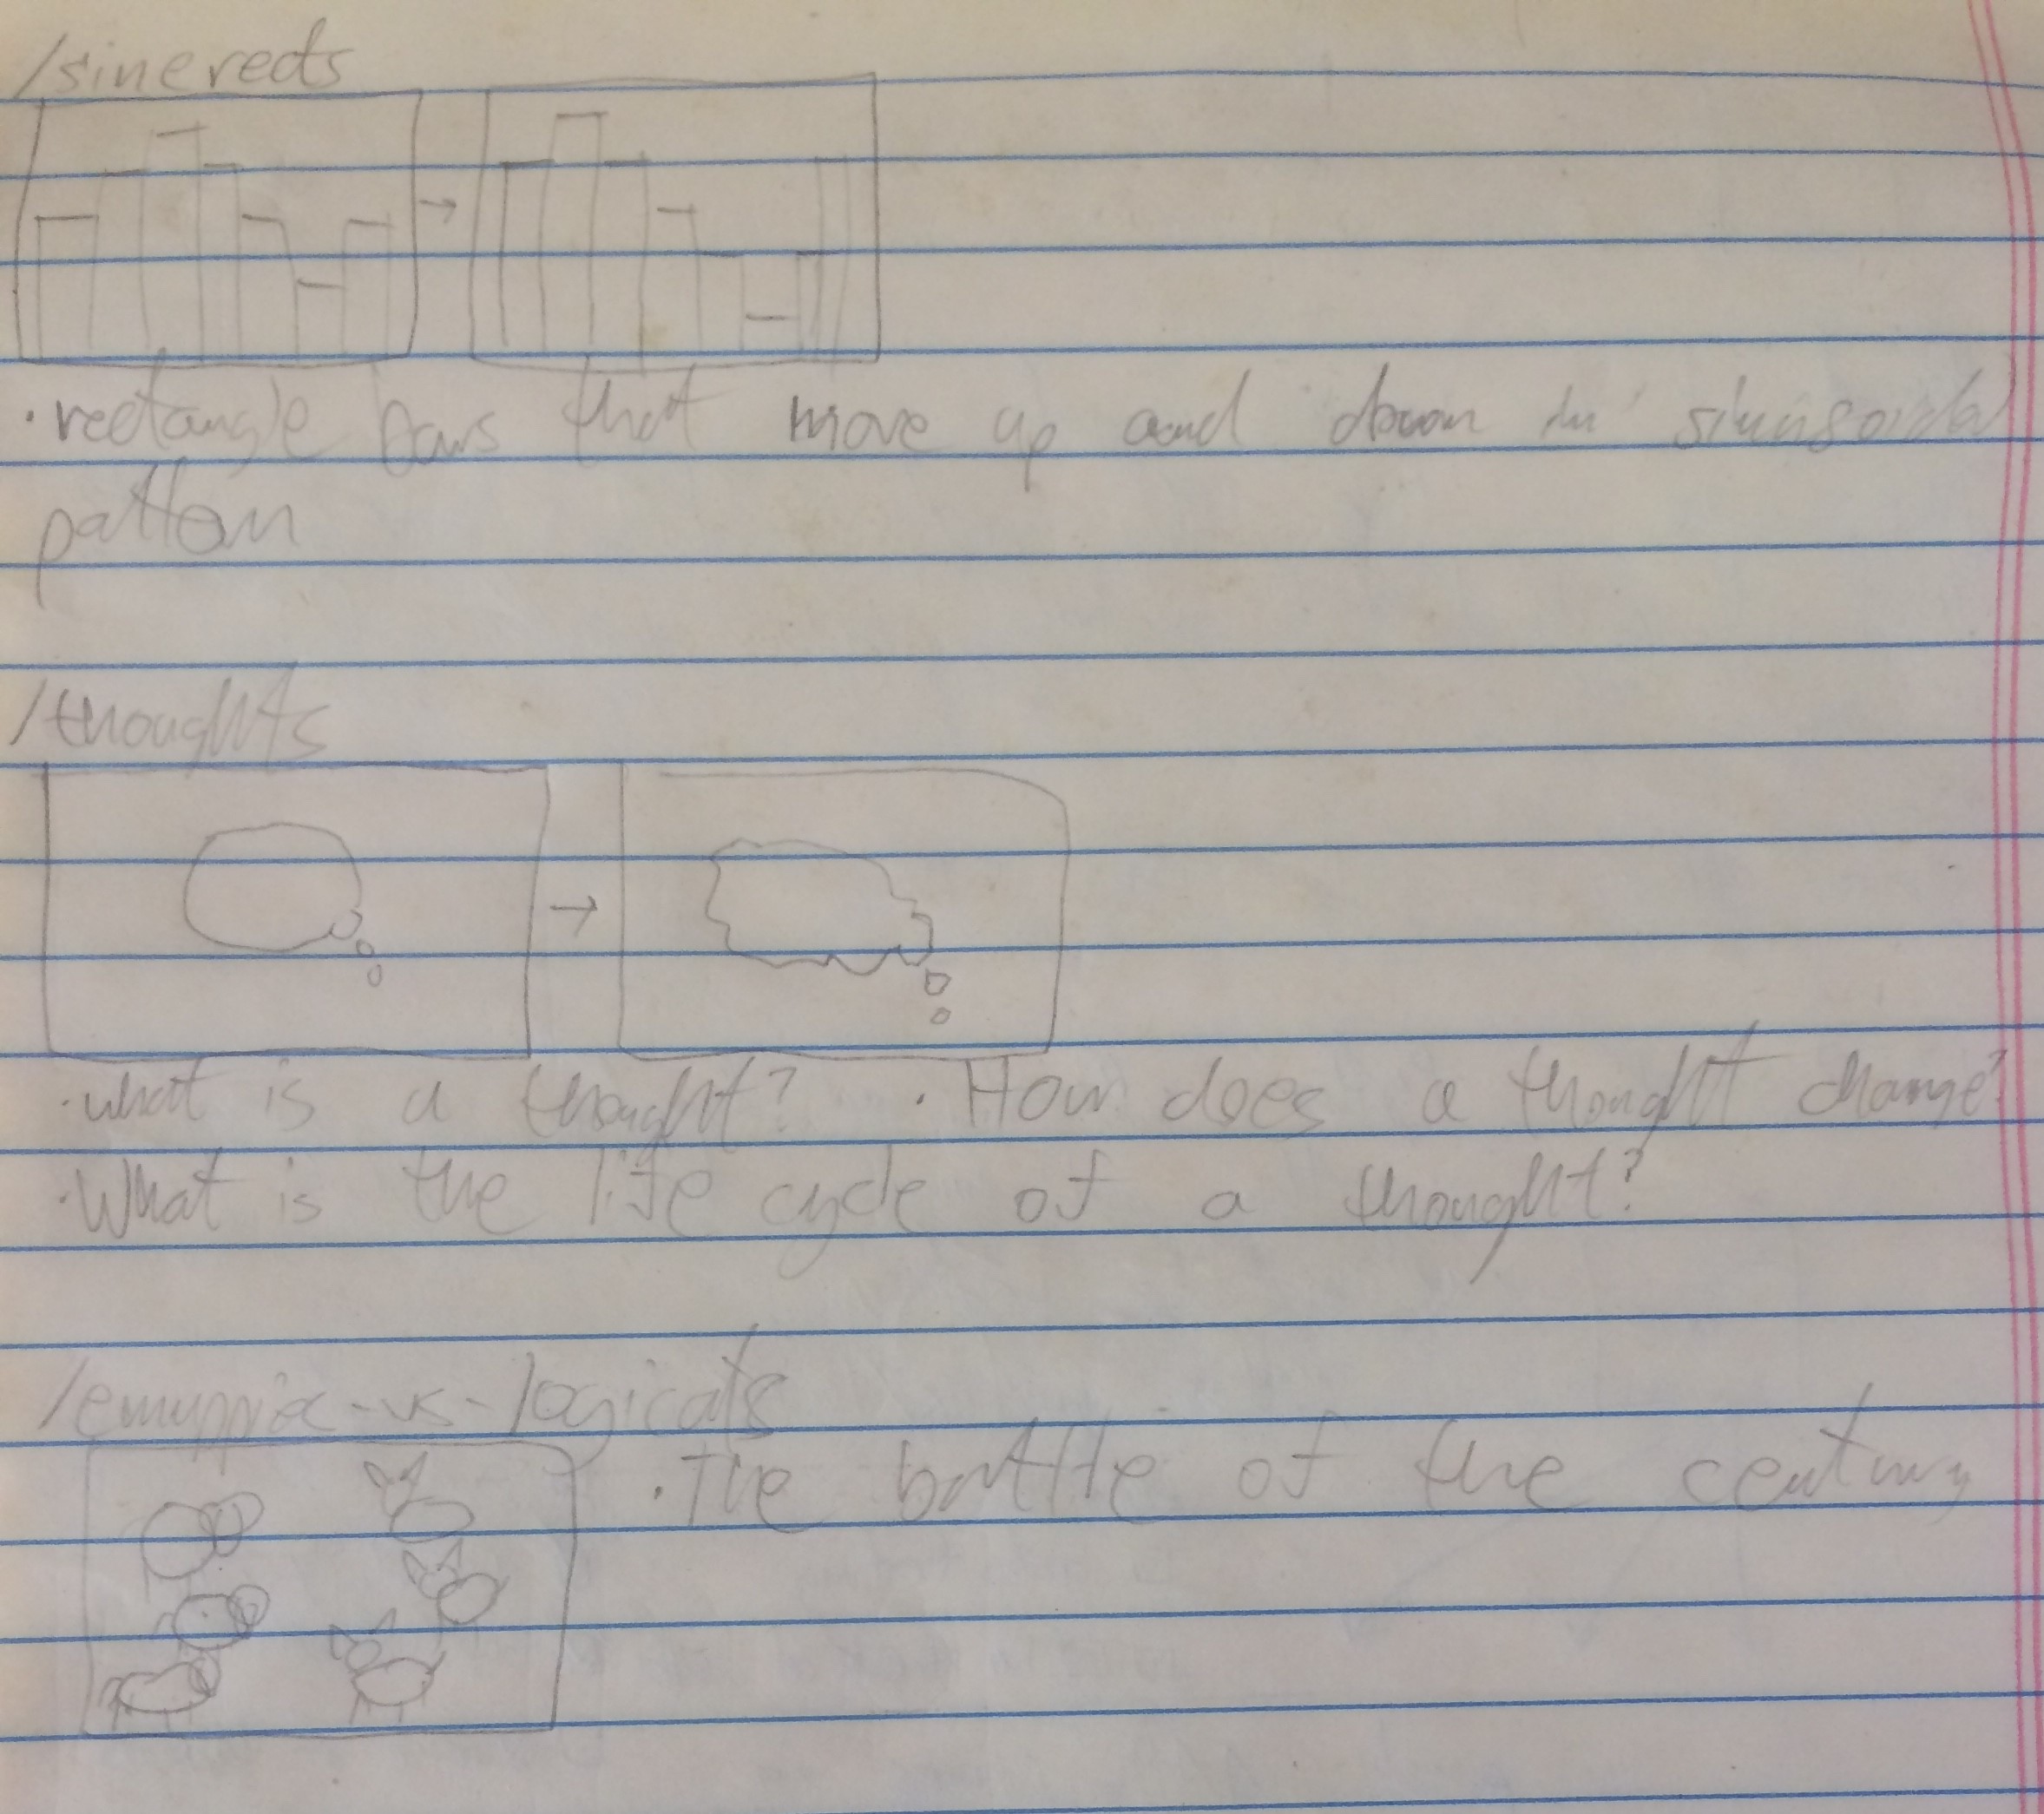 /sinerects
·rectangle bars that move up and down in sinusoidal
pattern
/thoughts
·what is a thought? ·How does a thought change?
·What is the life cycle of a thought?
-vs-logicats
·The battle of the century